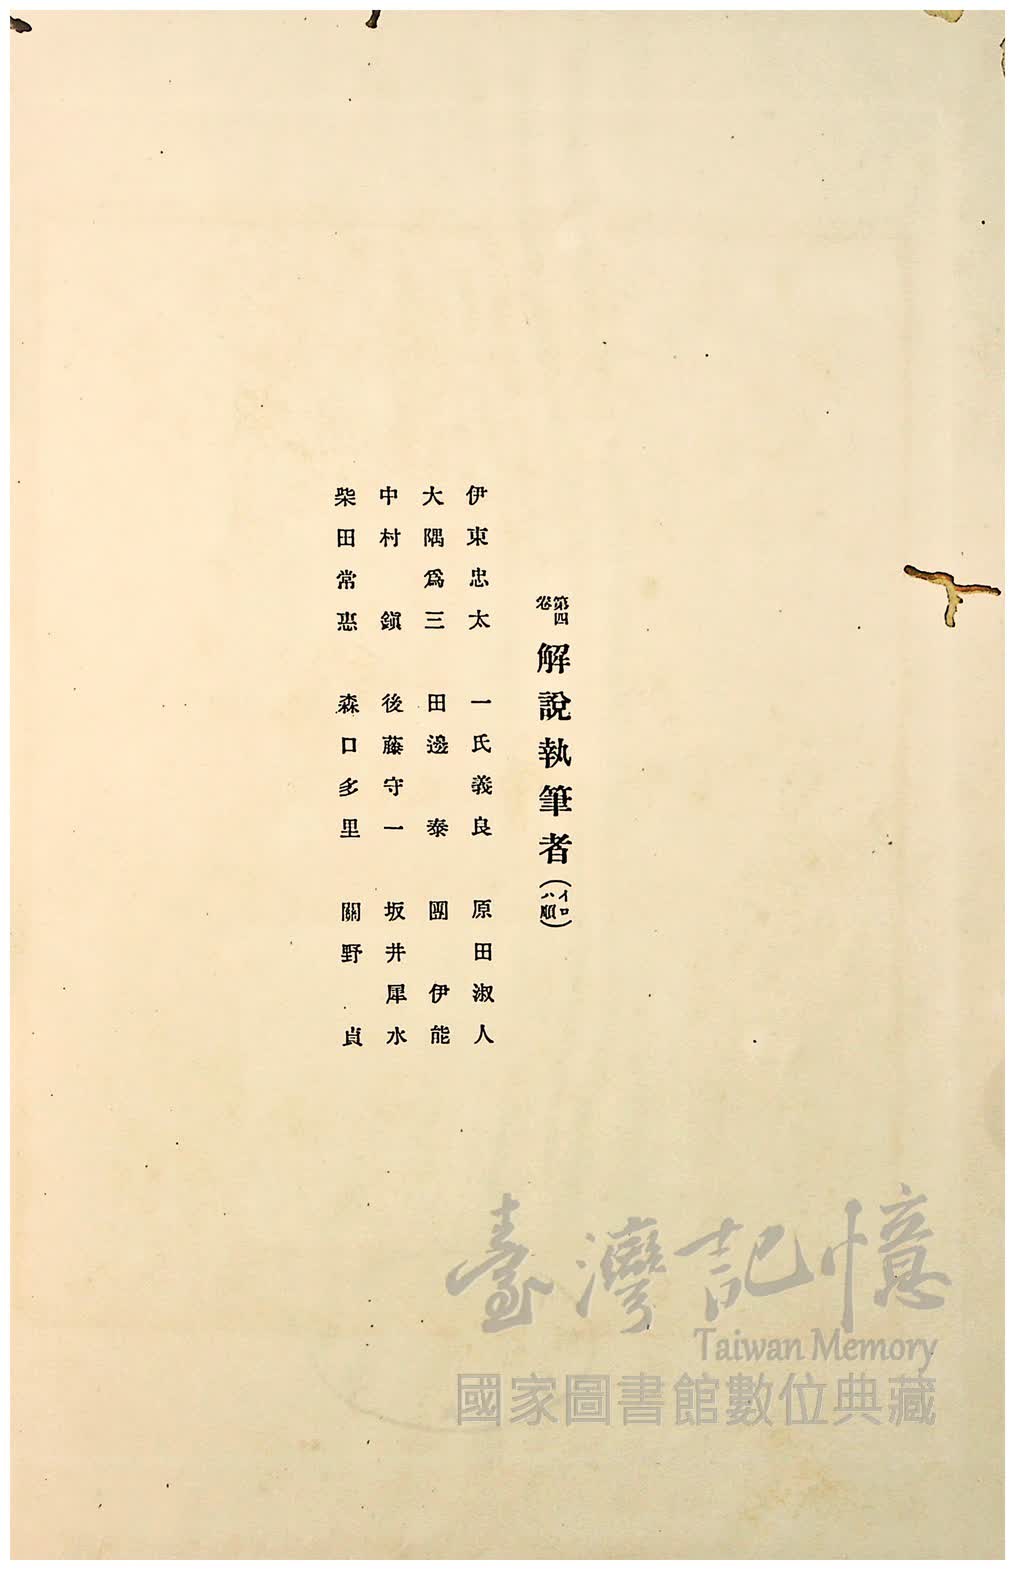 第四卷 解說執筆者(イロハ順)
伊東忠太 一氏義良 原田淑人
大隅爲三 田邊泰 團伊能
中村鎭 後藤守一 坂井犀水
柴田常惠 森口多里 關野貞
臺灣記憶
Taiwan Memory
國家圖書館數位典藏